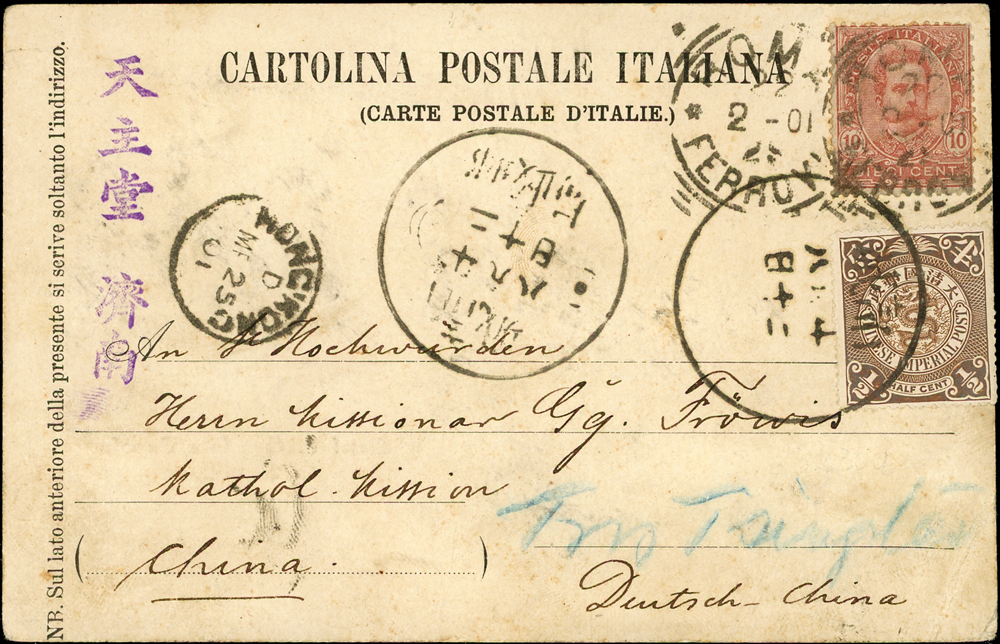 CARTOLINA POSTALE ITALIANA
(CARTE POSTALE D'ITALIE.)
NB. Sul lato anteriore della presente si scrive soltanto l'indirizzo.
天主堂 濟南
ROMA
2 - 01
FERROVIA
POSTE ITALIANE
10 10
DIECI CENT
HONG KONG
D
MR 25
01
CHINESE IMPERIAL POST
1/2 1/2
HALF CENT
An St Hochwürden
Herrn Missionar Gg. Fröwis
Kathol. Mission
Tsingtau
(China.)
Deutsch-China